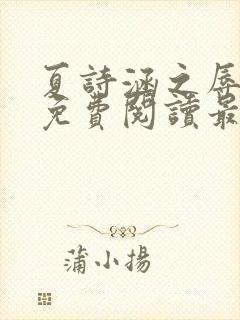 夏詩涵之辱
免費閱讀最
蒲小揚